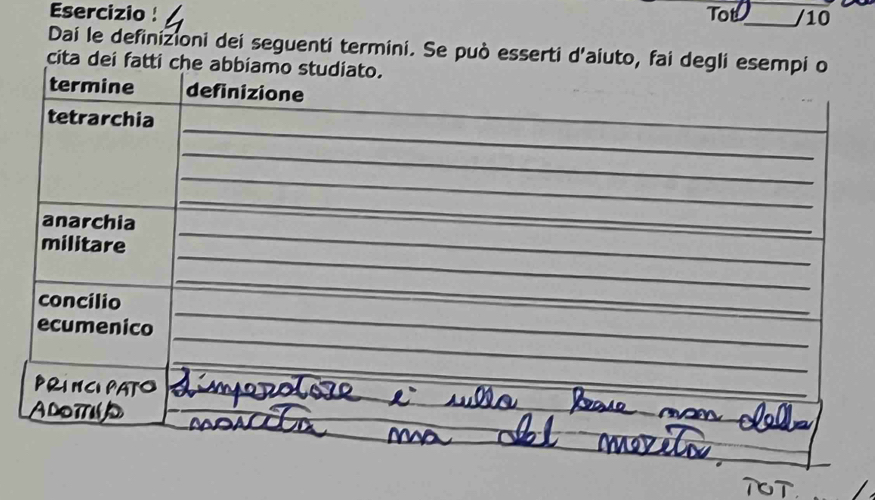 Esercizio : 4
Tot ____/10
Dai le definizioni dei seguenti termini. Se può esserti d'aiuto, fai degli esempi o
cita dei fatti che abbiamo studiato.
termine definizione
tetrarchia
anarchia
militare
concilio
ecumenico
PRINCIPATO L'imperatore è sulla base non della
ADOTTIVO nascita ma del merito.
TOT.